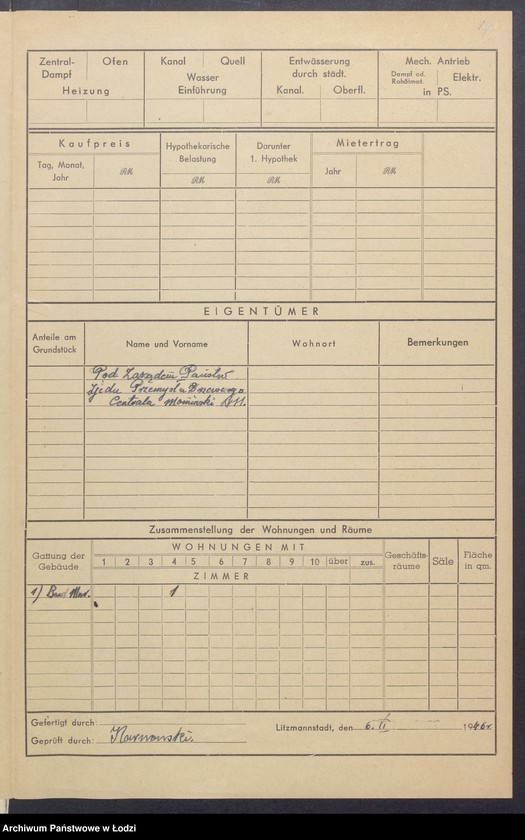 Zentral- Dampf
Ofen
Heizung
Kanal
Quell
Wasser
Einführung
Entwässerung
durch städt.
Kanal.
Oberfl.
Mech. Antrieb
Dampf od. Rohölmot.
Elektr.
in PS.
Kaufpreis
Tag, Monat, Jahr
RM
Hypothekarische
Belastung
RM
Darunter
1. Hypothek
RM
Mietertrag
Jahr
RM
EIGENTÜMER
Anteile am
Grundstück
Name und Vorname
Wohnort
Bemerkungen
Pod Zarządem Państw
Przemysłu
Centrala
Zusammenstellung der Wohnungen und Räume
Gattung der
Gebäude
WOHNUNGEN MIT
1 2 3 4 5 6 7 8 9 10 über zus.
ZIMMER
Geschäfts-
räume
Säle
Fläche
in qm.
1) 1
Gefertigt durch:
Geprüft durch:
Litzmannstadt, den 6. II 1946r
Archiwum Państwowe w Łodzi